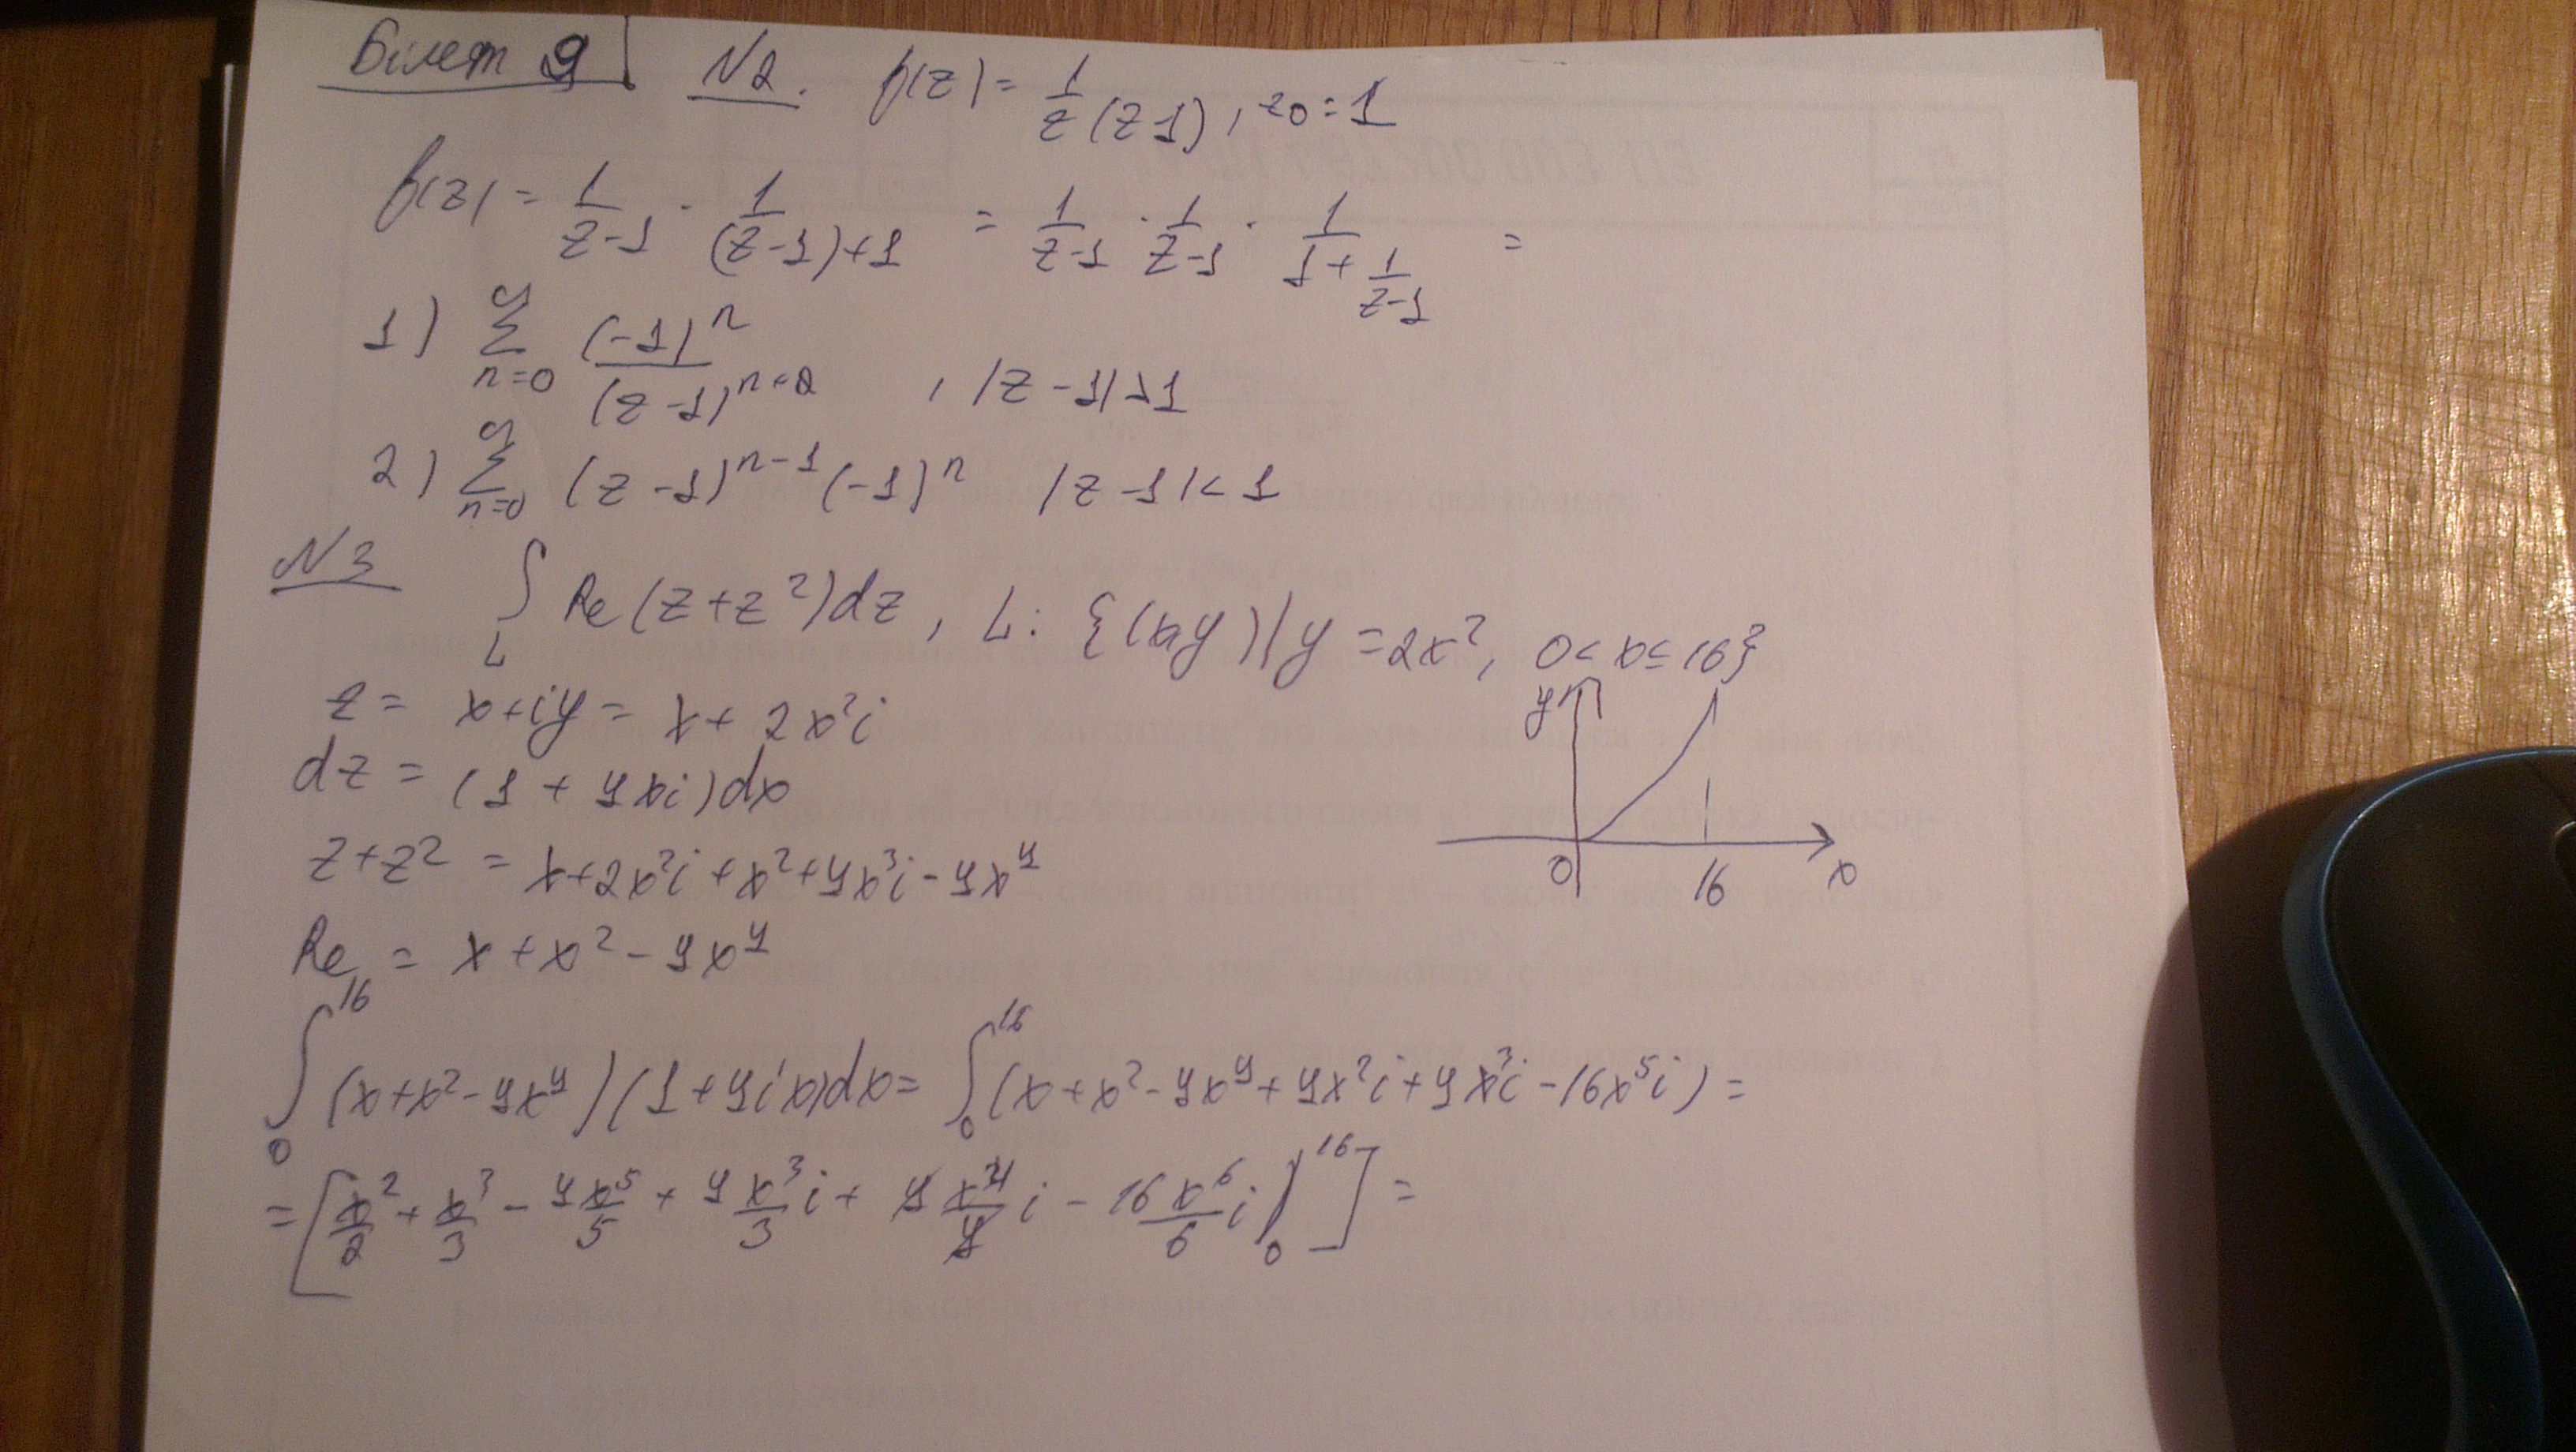 Билет 9
N2. f(z) = 1/z(z-1), z0 = 1
f(z) = 1/(z-1) · 1/((z-1)+1) = 1/(z-1) · 1/(z-1) · 1/(1+1/(z-1)) =
1) ∑_{n=0}^{∞} (-1)^n/(z-1)^{n+2} , |z-1|>1
2) ∑_{n=0}^{∞} (z-1)^{n-1} (-1)^n |z-1|<1
N3 ∫_L Re(z+z²)dz, L: {(xy)|y=2x², 0<x≤16}
z = x+iy = x+2x²i
dz = (1+4xi)dx
z+z² = x+2x²i+x²+4x³i-4x⁴
Re = x+x²-4x⁴
y
0
16
x
∫_0^16 (x+x²-4x⁴)(1+4ix)dx = ∫_0^16 (x+x²-4x⁴+4x²i+4x³i-16x⁵i) =
= [x²/2 + x³/3 - 4x⁵/5 + 4x³/3 i + 4x⁴/4 i - 16x⁶/6 i |_0^16] =